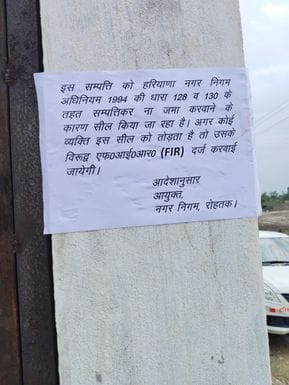 इस सम्पत्ति को हरियाणा नगर निगम
अधिनियम 1994 की धारा 128 व 130 के
तहत सम्पत्तिकर ना जमा करवाने के
कारण सील किया जा रहा है। अगर कोई
व्यक्ति इस सील को तोड़ता है तो उसके
विरूद्व एफ0आई0आर0 (FIR) दर्ज करवाई
जायेगी।
आदेशानुसार
आयुक्त,
नगर निगम, रोहतक।